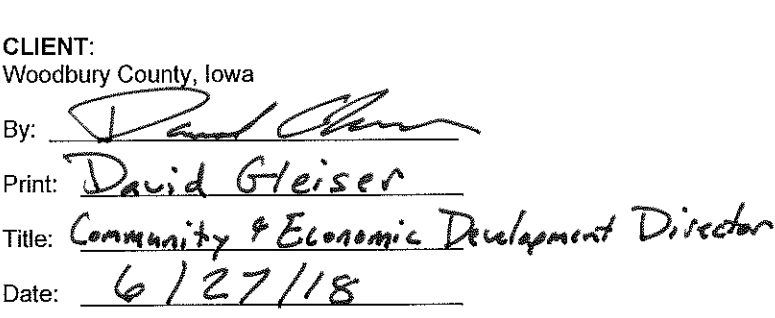 CLIENT:
Woodbury County, Iowa
By: David Gleiser
Print: David Gleiser
Title: Community & Economic Development Director
Date: 6/27/18